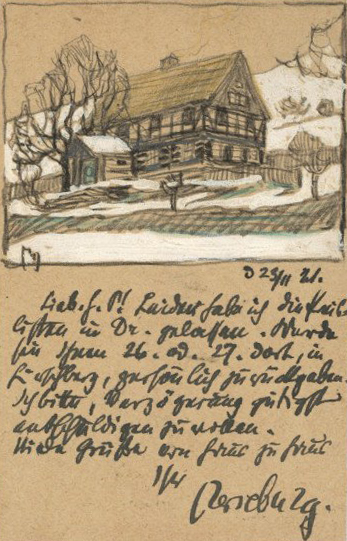 D 23/11 21.
Lieb. H. P! Leider habe ich die
listen in Dr. gelassen. Werde
sie Ihnen 26. od. 27. dort, in
persönlich zurückgeben.
Ich bitte, Verzögerung gütigst
entschuldigen zu wollen.
Viele Grüße von Haus zu Haus
Ihr